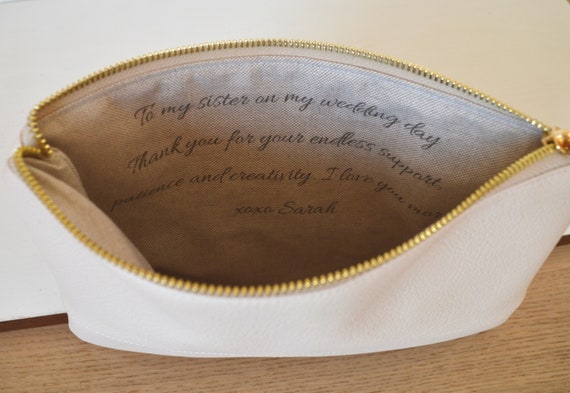 To my sister on my wedding day
Thank you for your endless support,
patience and creativity. I love you more
xoxo Sarah